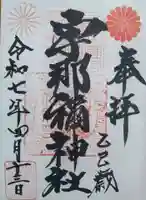 奉拝
乙巳歳
宇那禰神社
令和七年四月十三日